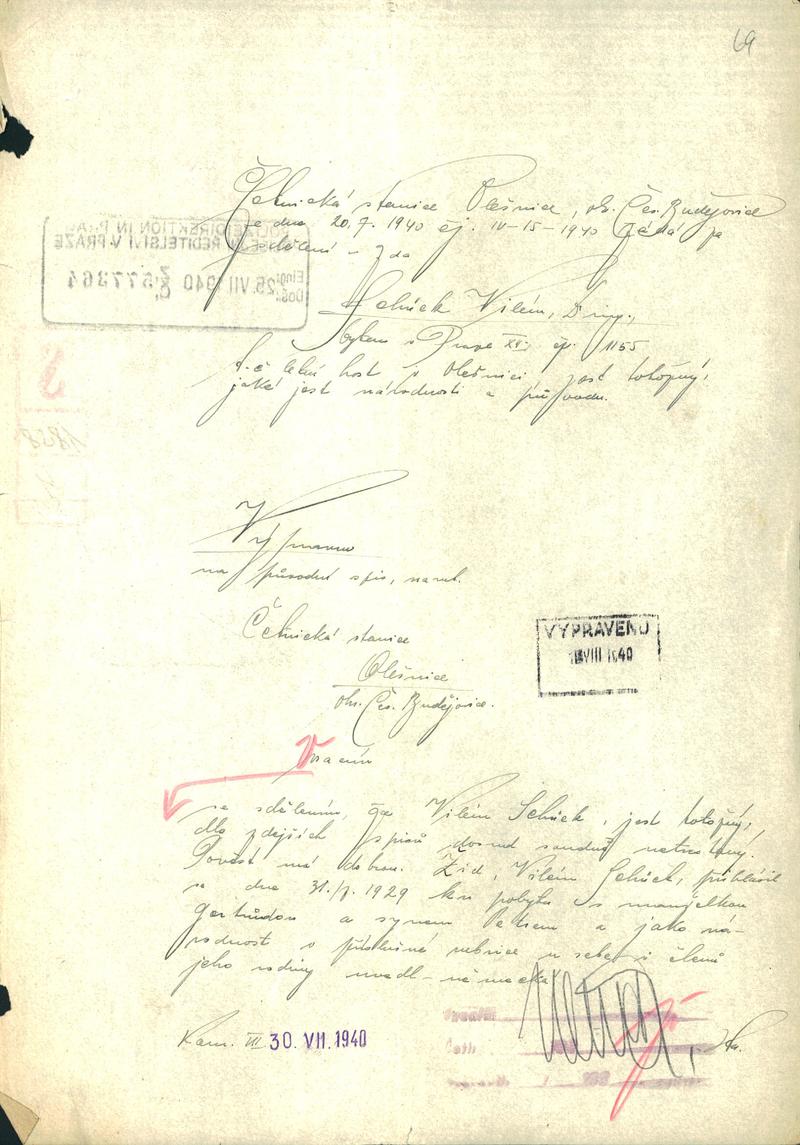 69
Četnická stanice Olešnice, okr. Čes. Budějovice
ze dne 20.7. 1940 čj. IV-15-1940 žádá za
sdělení - zda
Schück Vilém, Dr. ing.,
bytem v Praze XII., čp. 1155
t.č. letní host v Olešnici jest totožný,
jaké jest národnosti a původu.
POLIZEIDIREKTION IN PRAG
POLICEJNÍ ŘEDITELSTVÍ V PRAZE
Eing.:
Došlo:
25. VII 1940
577364
na původní spis, navrh.
Četnická stanice
Olešnice
okr. Čes. Budějovice.
VYPRAVENO
VIII 1940
Vracím
se sdělením, že Vilém Schück, jest totožný,
dle zdejších spisů dosud soudně netrestaný.
Pověst má dobrou. Žid, Vilém Schück, přihlásil
se dne 31./7. 1929 ku pobytu s manželkou
Gertrudou a synem Petrem a jako ná-
rodnost v příslušné rubrice u sebe i členů
jeho rodiny uvedl - německá
Kanc. III 30. VII. 1940